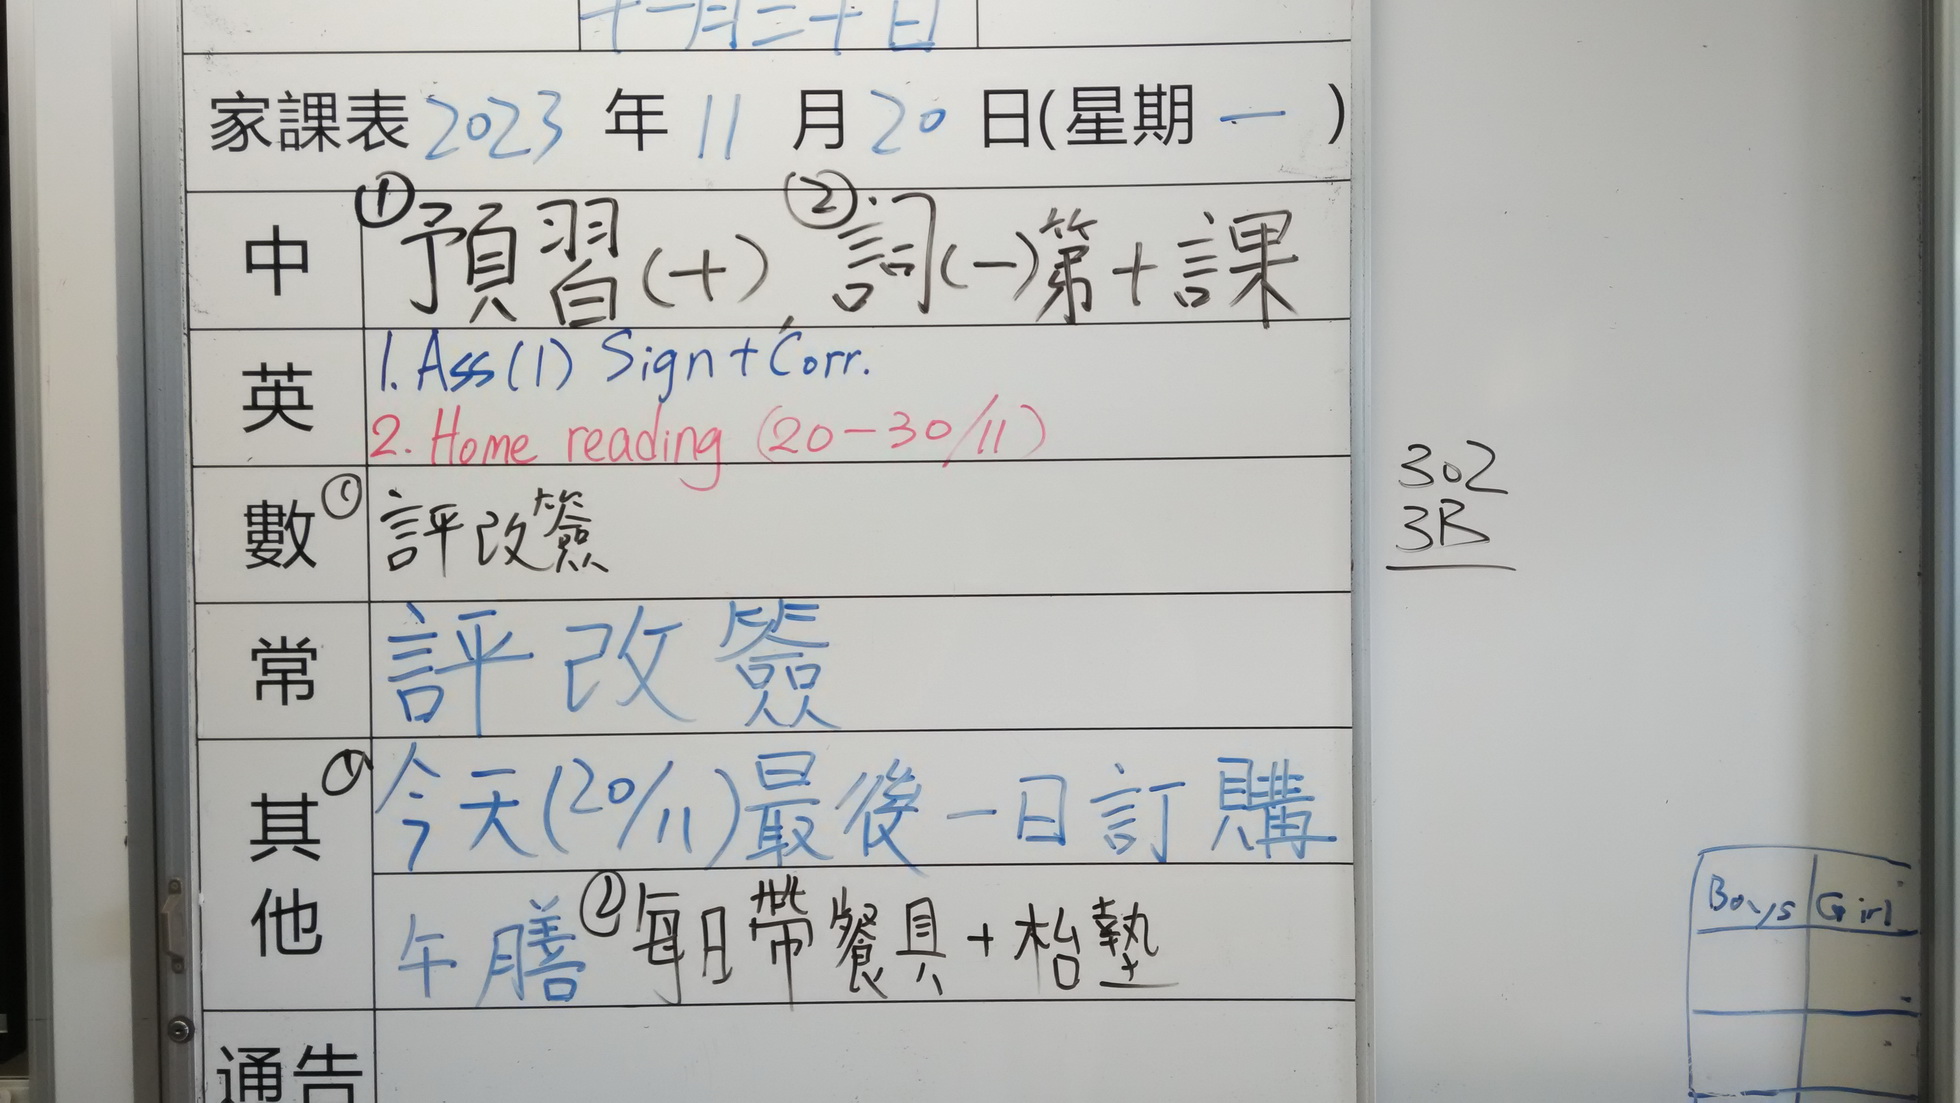 十一月二十日
家課表 2023 年 11 月 20 日(星期一)
中 ①預習(十), ②詞(一)第十課
英 1. Ass(1) Sign + Corr.
2. Home reading (20-30/11)
數 ① 評改簽
常 評改簽
其他 ① 今天(20/11)最後一日訂購
午膳 ② 每日帶餐具+枱墊
通告
302
3B
Boys Girl